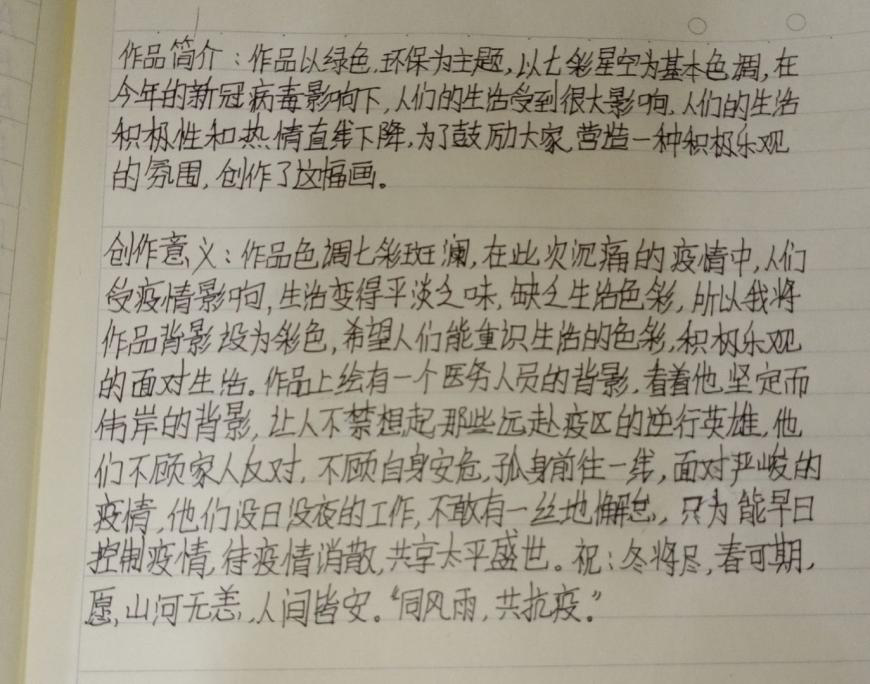 作品简介：作品以绿色.环保为主题,以七彩星空为基本色调,在
今年的新冠病毒影响下,人们的生活受到很大影响.人们的生活
积极性和热情直线下降,为了鼓励大家,营造一种积极乐观
的氛围,创作了这幅画。
创作意义：作品色调七彩斑澜,在此次沉痛的疫情中,人们
受疫情影响,生活变得平淡乏味,缺乏生活色彩,所以我将
作品背影设为彩色,希望人们能重识生活的色彩,积极乐观
的面对生活。作品上绘有一个医务人员的背影,看着他坚定而
伟岸的背影,让人不禁想起那些远赴疫区的逆行英雄,他
们不顾家人反对,不顾自身安危,孤身前往一线,面对严峻的
疫情,他们没日没夜的工作,不敢有一丝地懈怠,只为能早日
控制疫情,待疫情消散,共享太平盛世。祝：冬将尽,春可期,
愿,山河无恙,人间皆安。“同风雨,共抗疫。”